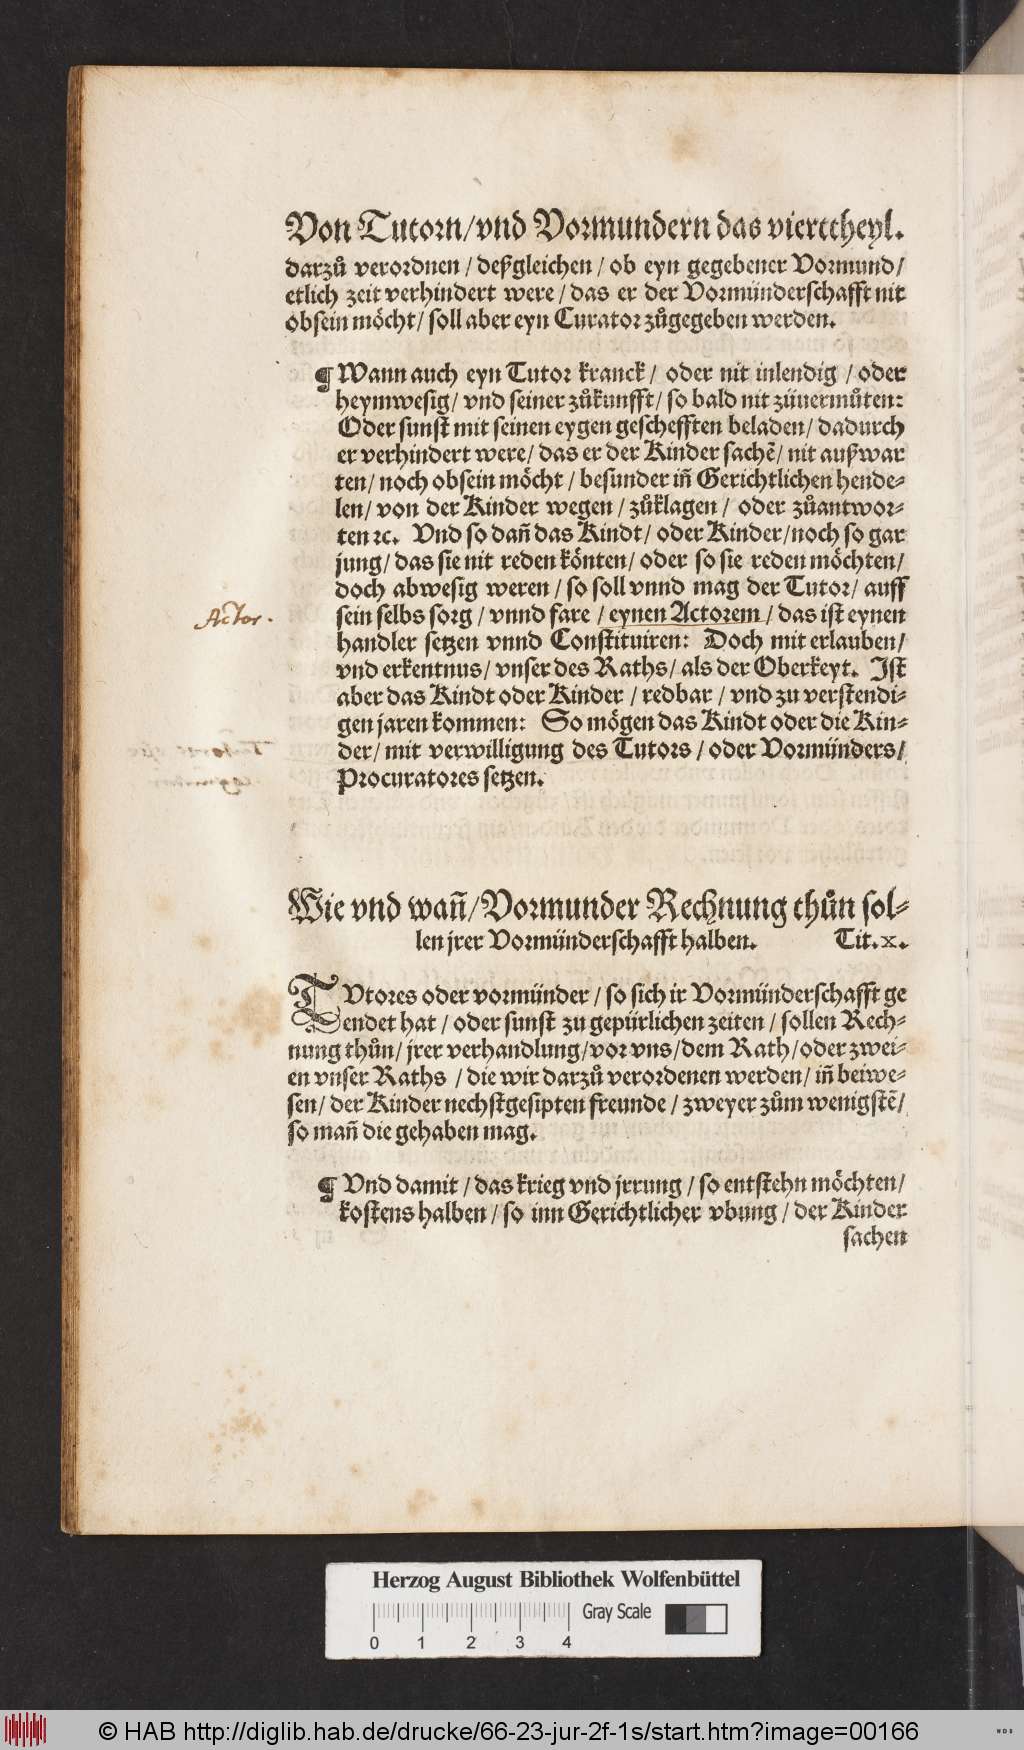 Von Tutorn/vnd Vormundern das vierttheyl.
darzů verordnen / deßgleichen / ob eyn gegebener Vormund/
etlich zeit verhindert were / das er der Vormünderschafft nit
obsein möcht / soll aber eyn Curator zůgegeben werden.
¶ Wann auch eyn Tutor kranck / oder nit inlendig / oder
heymwesig / vnd seiner zůkunfft / so bald nit züuermůten:
Oder sunst mit seinen eygen geschefften beladen / dadurch
er verhindert were / das er der Kinder sachẽ / nit außwar
ten / noch obsein möcht / besunder iñ Gerichtlichen hende⸗
len / von der Kinder wegen / zůklagen / oder zůantwor⸗
ten ꝛc. Vnd so dañ das Kindt / oder Kinder/noch so gar
jung / das sie nit reden könten / oder so sie reden möchten/
doch abwesig weren / so soll vnnd mag der Tutor / auff
Actor.
sein selbs sorg / vnnd fare / eynen Actorem / das ist eynen
handler setzen vnnd Constituiren: Doch mit erlauben/
vnd erkentnus / vnser des Raths / als der Oberkeyt. Ist
aber das Kindt oder Kinder / redbar / vnd zu verstendi⸗
gen jaren kommen: So mögen das Kindt oder die Kin⸗
der / mit verwilligung des Tutors / oder Vormünders/
Procuratores setzen.
Wie vnd wañ/Vormunder Rechnung thůn sol⸗
len jrer Vormünderschafft halben. Tit. x.
TVtores oder vormünder / so sich ir Vormünderschafft ge
endet hat / oder sunst zu gepürlichen zeiten / sollen Rech⸗
nung thůn / jrer verhandlung/vor vns/dem Rath/oder zwei⸗
en vnser Raths / die wir darzů verordenen werden / iñ beiwe⸗
sen / der Kinder nechstgesipten freunde / zweyer zům wenigstẽ/
so mañ die gehaben mag.
¶ Vnd damit / das krieg vnd jrrung / so entstehn möchten/
kostens halben / so inn Gerichtlicher vbung / der Kinder
sachen
Herzog August Bibliothek Wolfenbüttel
Gray Scale
0 1 2 3 4
© HAB http://diglib.hab.de/drucke/66-23-jur-2f-1s/start.htm?image=00166